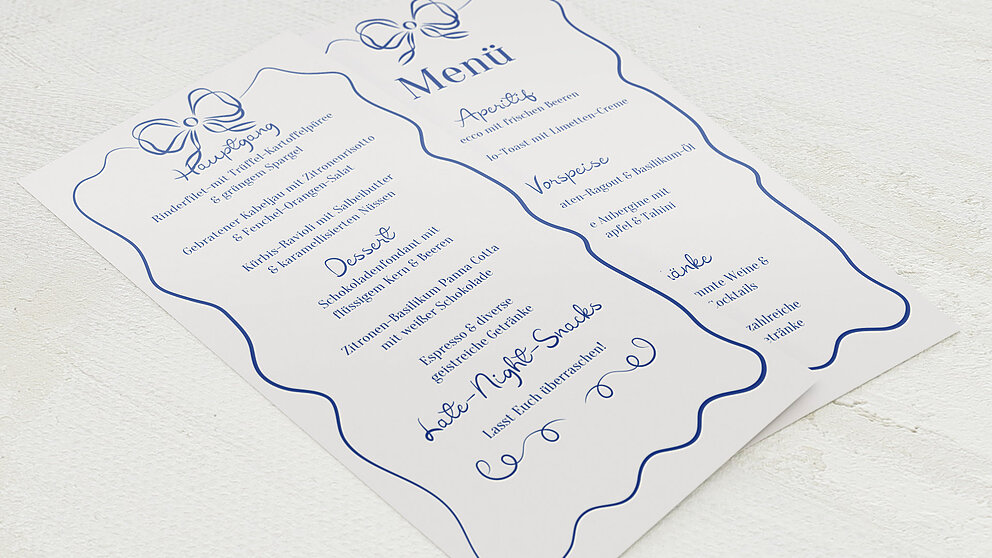 Hauptgang
Rinderfilet mit Trüffel-Kartoffelpüree
& grüngem Spargel
Gebratener Kabeljau mit Zitronenrisotto
& Fenchel-Orangen-Salat
Kürbis-Ravioli mit Salbeibutter
& karamellisierten Nüssen
Dessert
Schokoladenfondant mit
flüssigem Kern & Beeren
Zitronen-Basilikum Panna Cotta
mit weißer Schokolade
Espresso & diverse
geistreiche Getränke
Late-Night-Snacks
Lasst Euch überraschen!
Menü
Aperitif
ecco mit frischen Beeren
lo-Toast mit Limetten-Creme
Vorspeise
aten-Ragout & Basilikum-Öl
e Aubergine mit
apfel & Tahini
änke
mmte Weine &
Cocktails
zahlreiche
etränke